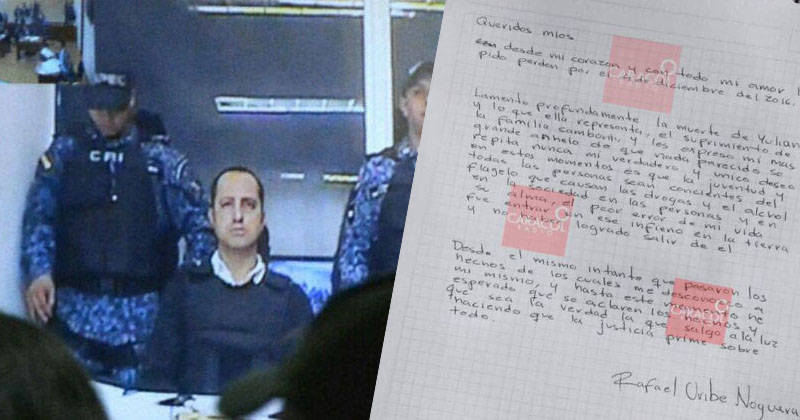 CRI
Queridos mios
desde mi corazon y con todo mi amor l
pido perdon por el 4 de diciembre del 2016.
Lamento profundamente la muerte de Yulian
y lo que ella representa, el suprimiento de
la familia samboni, y les expreso mi mas
grande anhelo de que nada parecido se
repita nunca mi verdadero y unico deseo
en estos momentos es que la juventud y
todas las personas sean concientes del
flagelo que causan las drogas y el alchol
en la sociedad en las personas y en
su alma, el peor error de mi vida
fue entrar en ese infieno en la tierra
y no haber logrado salir de el
Desde el mismo instante que pasaron los
hechos de los cuales me desconozco a
mi mismo, y hasta este momento he
esperado que se aclaren los hechos y
que sea la verdad la que salga a la luz
haciendo que la justicia prime sobre
todo.
Rafael Uribe Noguera
CARACOL
RADIO
CARACOL
RADIO
CARACOL
RADIO